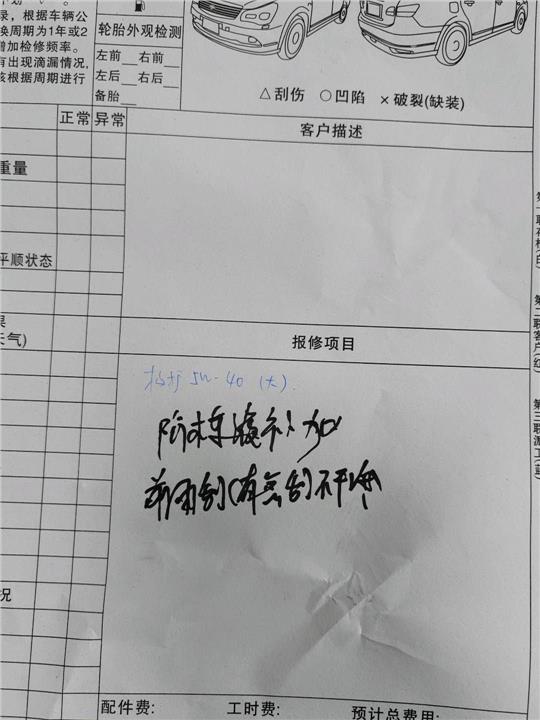 录，根据车辆公
换周期为1年或2
增加检修频率。
有出现滴漏情况，
该根据周期进行
轮胎外观检测
左前__右前__
左后__右后__
备胎__
△刮伤 ○凹陷 ×破裂(缺装)
正常 异常
客户描述
重量
平顺状态
果
天气)
况
报修项目
5W-40 (大).
防冻液补加
前雨刮(有 刮)不干净
配件费:
工时费:
预计总费用:
第一联存根(白)
第二联客户(红)
第三联派工(蓝)